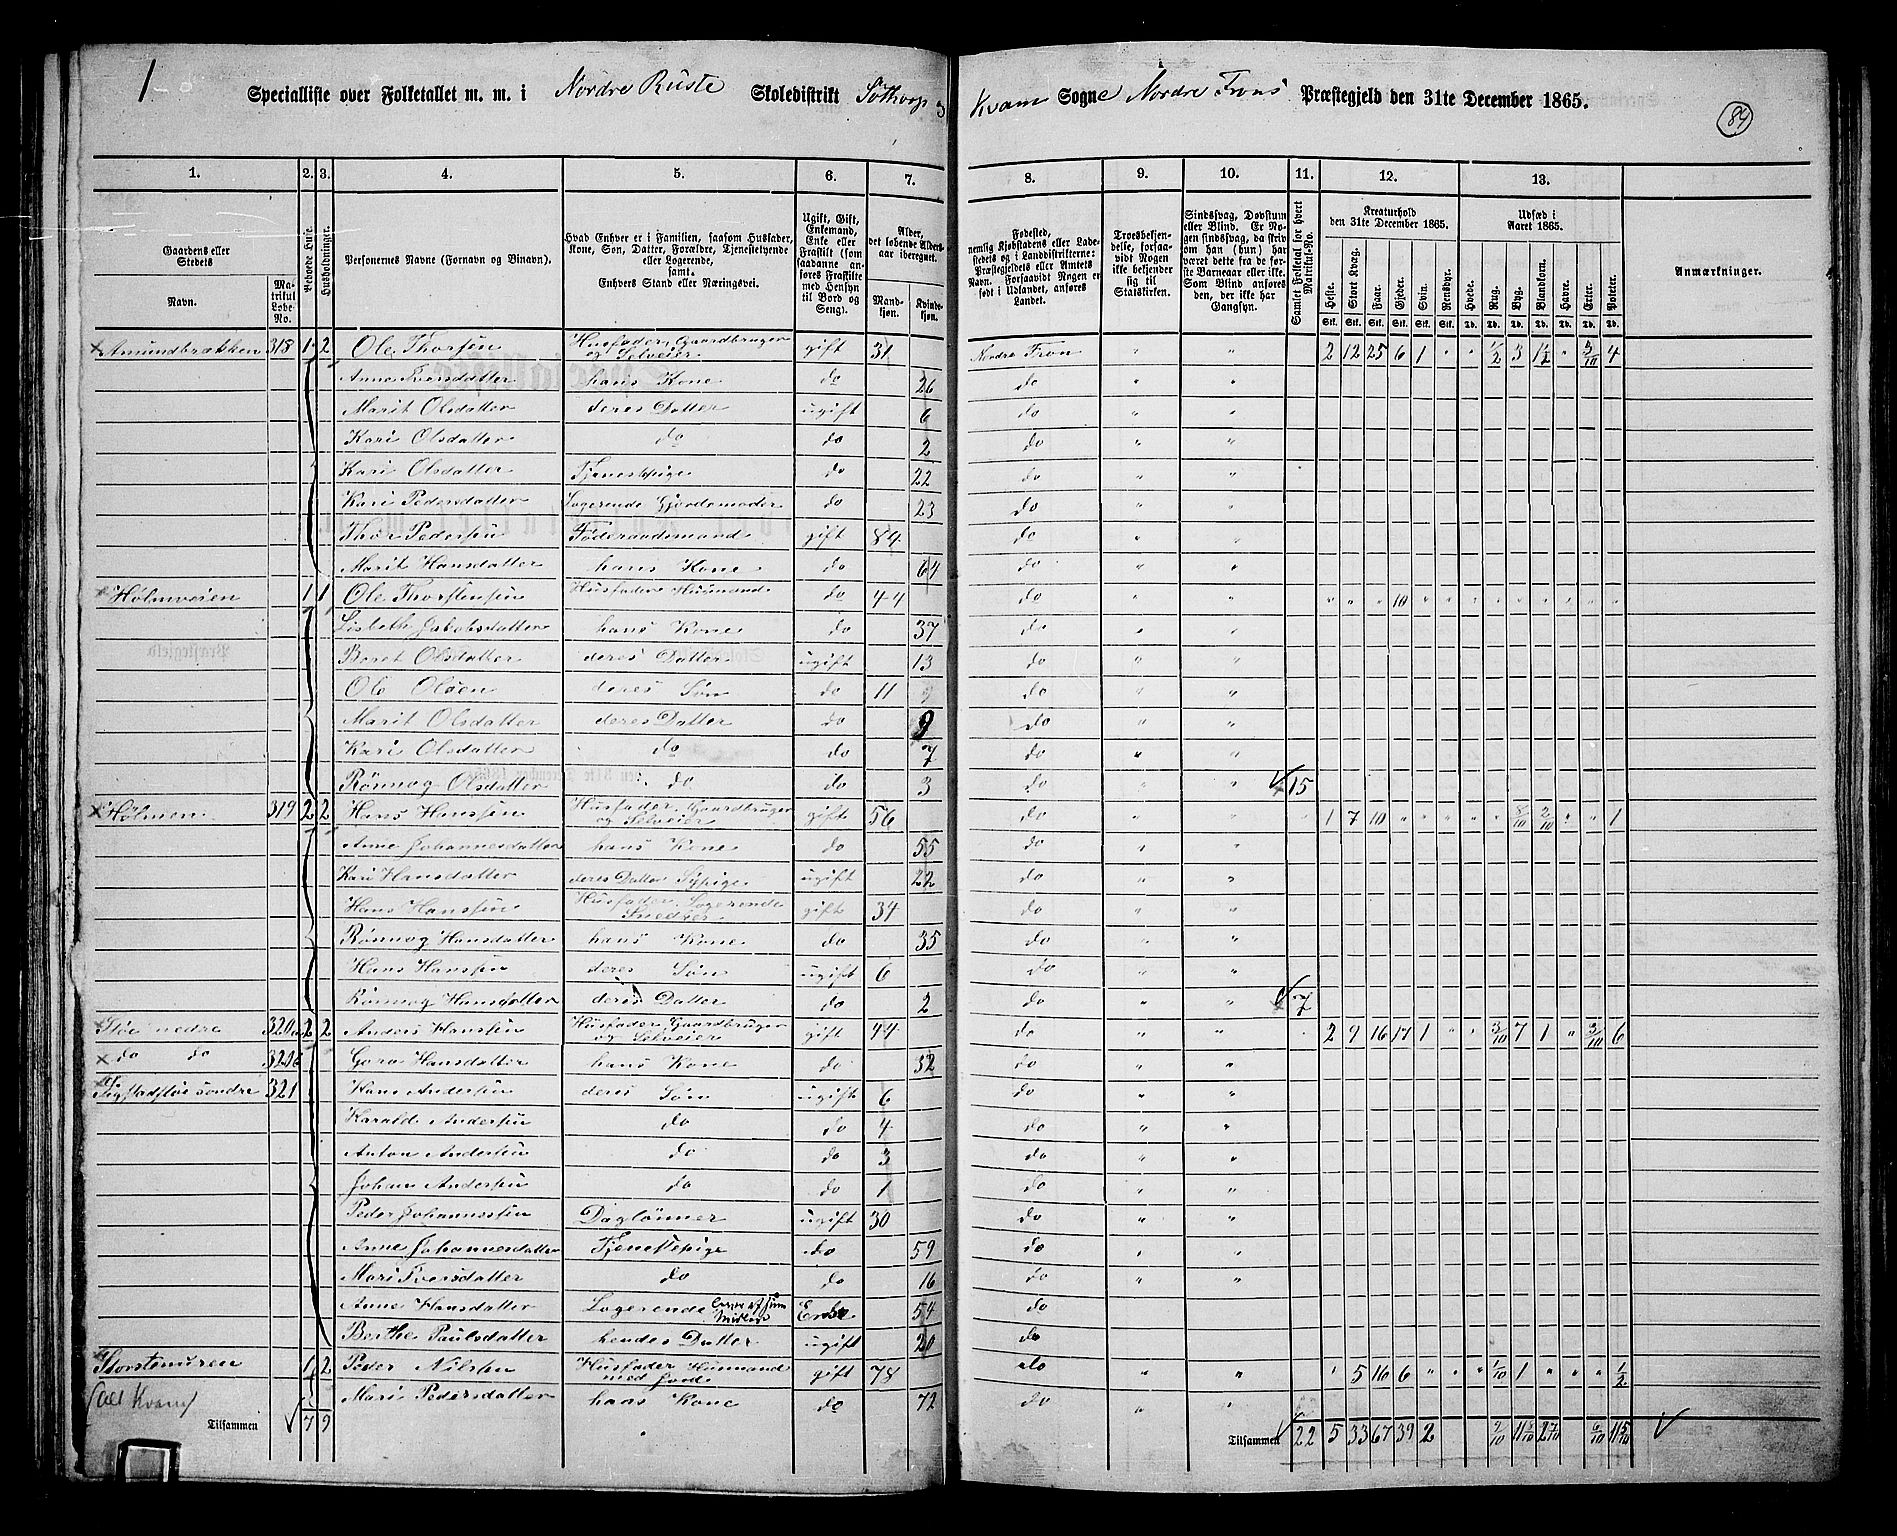 1
Specialliste over Folketallet m. m. i Nordre Ruste Skoledistrikt Kvam Sogne Nordre Frons Præstegjeld den 31te December 1865.
84
1. 2. 3. 4. 5. 6. 7. 8. 9. 10. 11. 12. 13.
Gaardens eller Stedets
Navn.
Matrikul Løbe-No.
Beboede Huse.
Husholdninger.
Personernes Navne (Fornavn og Binavn).
Hvad Enhver er i Familien, saasom Husfader, Kone, Søn, Datter, Forældre, Tjenestetyende eller Logerende, samt Enhvers Stand eller Næringsvei.
Ugift, Gift, Enkemand, Enke eller Fraskilt (som saadanne anføres med Hensyn til Bord og Seng).
Alder, det løbende Aldersaar iberegnet.
Mandkjøn. Kvindekjøn.
Fødested,
nemlig Kjøbstadens eller Ladestedets og i Landdistrikterne: Præstegjeldets eller Amtets Navn. Forsaavidt Nogen er født i Udlandet, anføres Landet.
Troesbekjendelse, forsaavidt Nogen ikke bekjender sig til Statskirken.
Sindssvag, Døvstum eller Blind.
Samlet Folketal for hvert Matrikul-No.
Kreaturhold den 31te December 1865.
Heste. Stort Kvæg. Faar. Gjeder. Svin. Rensdyr.
Udsæd i Aaret 1865.
Hvede. Rug. Byg. Blandkorn. Havre. Erter. Poteter.
Anmærkninger.
Amundbrækken 318 1 2 Ole Thorsen Husfader, Gaardbruger og Selveier gift 31 Nordre Fron " " 2 12 25 6 1 " " 1/2 3 1 1/2 " 3/10 4
Anne Iversdatter hans Kone do 26 do " "
Marit Olsdatter deres Datter ugift 6 do " "
Kari Olsdatter do do 2 do " "
Kari Olsdatter Tjenestpige do 22 do " "
Kari Pedersdatter Logerende Gjordemoder do 23 do " "
Thor Pedersen Føderaadsmand gift 84 do " "
Marit Hansdatter hans Kone do 64 do " "
Holmveien 1 1 Ole Thorstensen Husfader Husmand do 44 do " " " " " 10 " " " " " " " " "
Lisbeth Jakobsdatter hans Kone do 37 do " "
Beret Olsdatter deres Datter ugift 13 do " "
Ole Olsen deres Søn do 11 do " "
Marit Olsdatter deres Datter do 9 do " "
Kari Olsdatter do do 7 do " "
Rønnog Olsdatter do do 3 do " " 15
Holmen 319 2 2 Hans Hanssen Husfader, Gaardbruger og Selveier gift 56 do " " 1 7 10 " " " " " 8/10 2/10 " " 1
Anne Johannesdatter hans Kone do 55 do " "
Kari Hansdatter deres Datter Sypige ugift 22 do " "
Hans Hanssen Husfader, Logerende Snedker gift 34 do " "
Rønnog Hansdatter hans Kone do 35 do " "
Hans Hanssen deres Søn ugift 6 do " "
Rønnog Hansdatter deres Datter do 2 do " " 7
nedre 320a 2 2 Anders Hanssen Husfader Gaardbruger og Selveier gift 44 do " " 2 9 16 17 1 " " 3/10 7 1 " 3/10 6
do do 320b Goro Hansdatter hans Kone do 32 do " "
søndre 321 Hans Andersen deres Søn ugift 6 do " "
Harald Andersen do do 4 do " "
Anton Andersen do do 3 do " "
Johan Andersen do do 1 do " "
Peder Johannessen Daglønner ugift 30 do " "
Anne Johannesdatter Tjenestepige do 59 do " "
Mari Iversdatter do do 16 do " "
Anne Hansdatter Logerende Lever af sine Midler Enke 54 do
Berthe Paulsdatter hendes Datter ugift 20 do
Storstenuren 1 2 Peder Nilsen Husfader Husmand med Jord gift 78 do " " " 5 16 6 " " " 1/10 1 " " " 1/2
Mari Pedersdatter hans Kone do 72 do
Tilsammen 7 9
Tilsammen 22 5 33 67 39 2